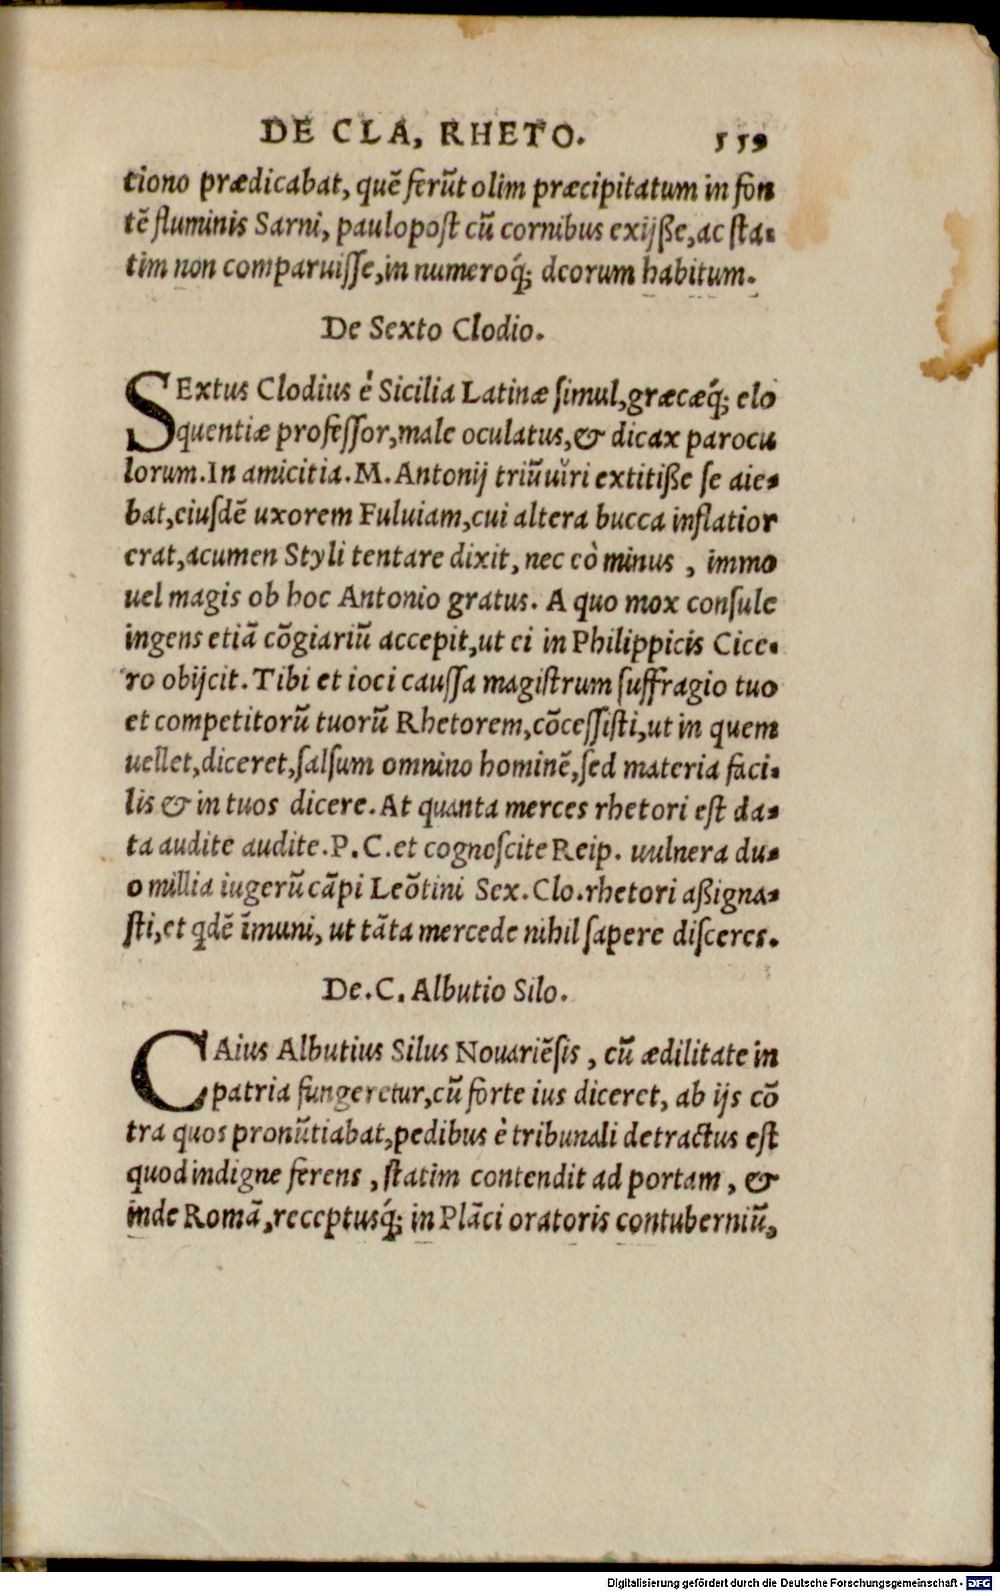 DE CLA, RHETO. 559
tiono prædicabat, quē ferūt olim præcipitatum in fon
tē fluminis Sarni, paulopoſt cū cornibus exijße, ac ſta-
tim non comparuiſſe, in numeroq́; deorum habitum.
De Sexto Clodio.
SExtus Clodius è Sicilia Latinæ ſimul, græcæq́; elo
quentiæ profeſſor, male oculatus, & dicax parocu
lorum. In amicitia. M. Antonij triūuiri extitiße ſe aie-
bat, eiuſdē uxorem Fuluiam, cui altera bucca inflatior
erat, acumen Styli tentare dixit, nec eò minus, immo
uel magis ob hoc Antonio gratus. A quo mox conſule
ingens etiā cōgiariū accepit, ut ei in Philippicis Cice-
ro obijcit. Tibi et ioci cauſſa magiſtrum ſuffragio tuo
et competitorū tuorū Rhetorem, cōceſſiſti, ut in quem
uellet, diceret, ſalſum omnino hominē, ſed materia faci-
lis & in tuos dicere. At quanta merces rhetori eſt da-
ta audite audite. P. C. et cognoſcite Reip. uulnera du-
o millia iugerū cāpi Leōtini Sex. Clo. rhetori aßigna-
ſti, et qdē īmuni, ut tāta mercede nihil ſapere diſceres.
De. C. Albutio Silo.
CAius Albutius Silus Nouariēſis, cū ædilitate in
patria fungeretur, cū forte ius diceret, ab ijs cō
tra quos pronūtiabat, pedibus è tribunali detractus eſt
quod indigne ferens, ſtatim contendit ad portam, &
inde Romā, receptusq́; in Plāci oratoris contuberniū,
Digitalisierung gefördert durch die Deutsche Forschungsgemeinschaft - DFG